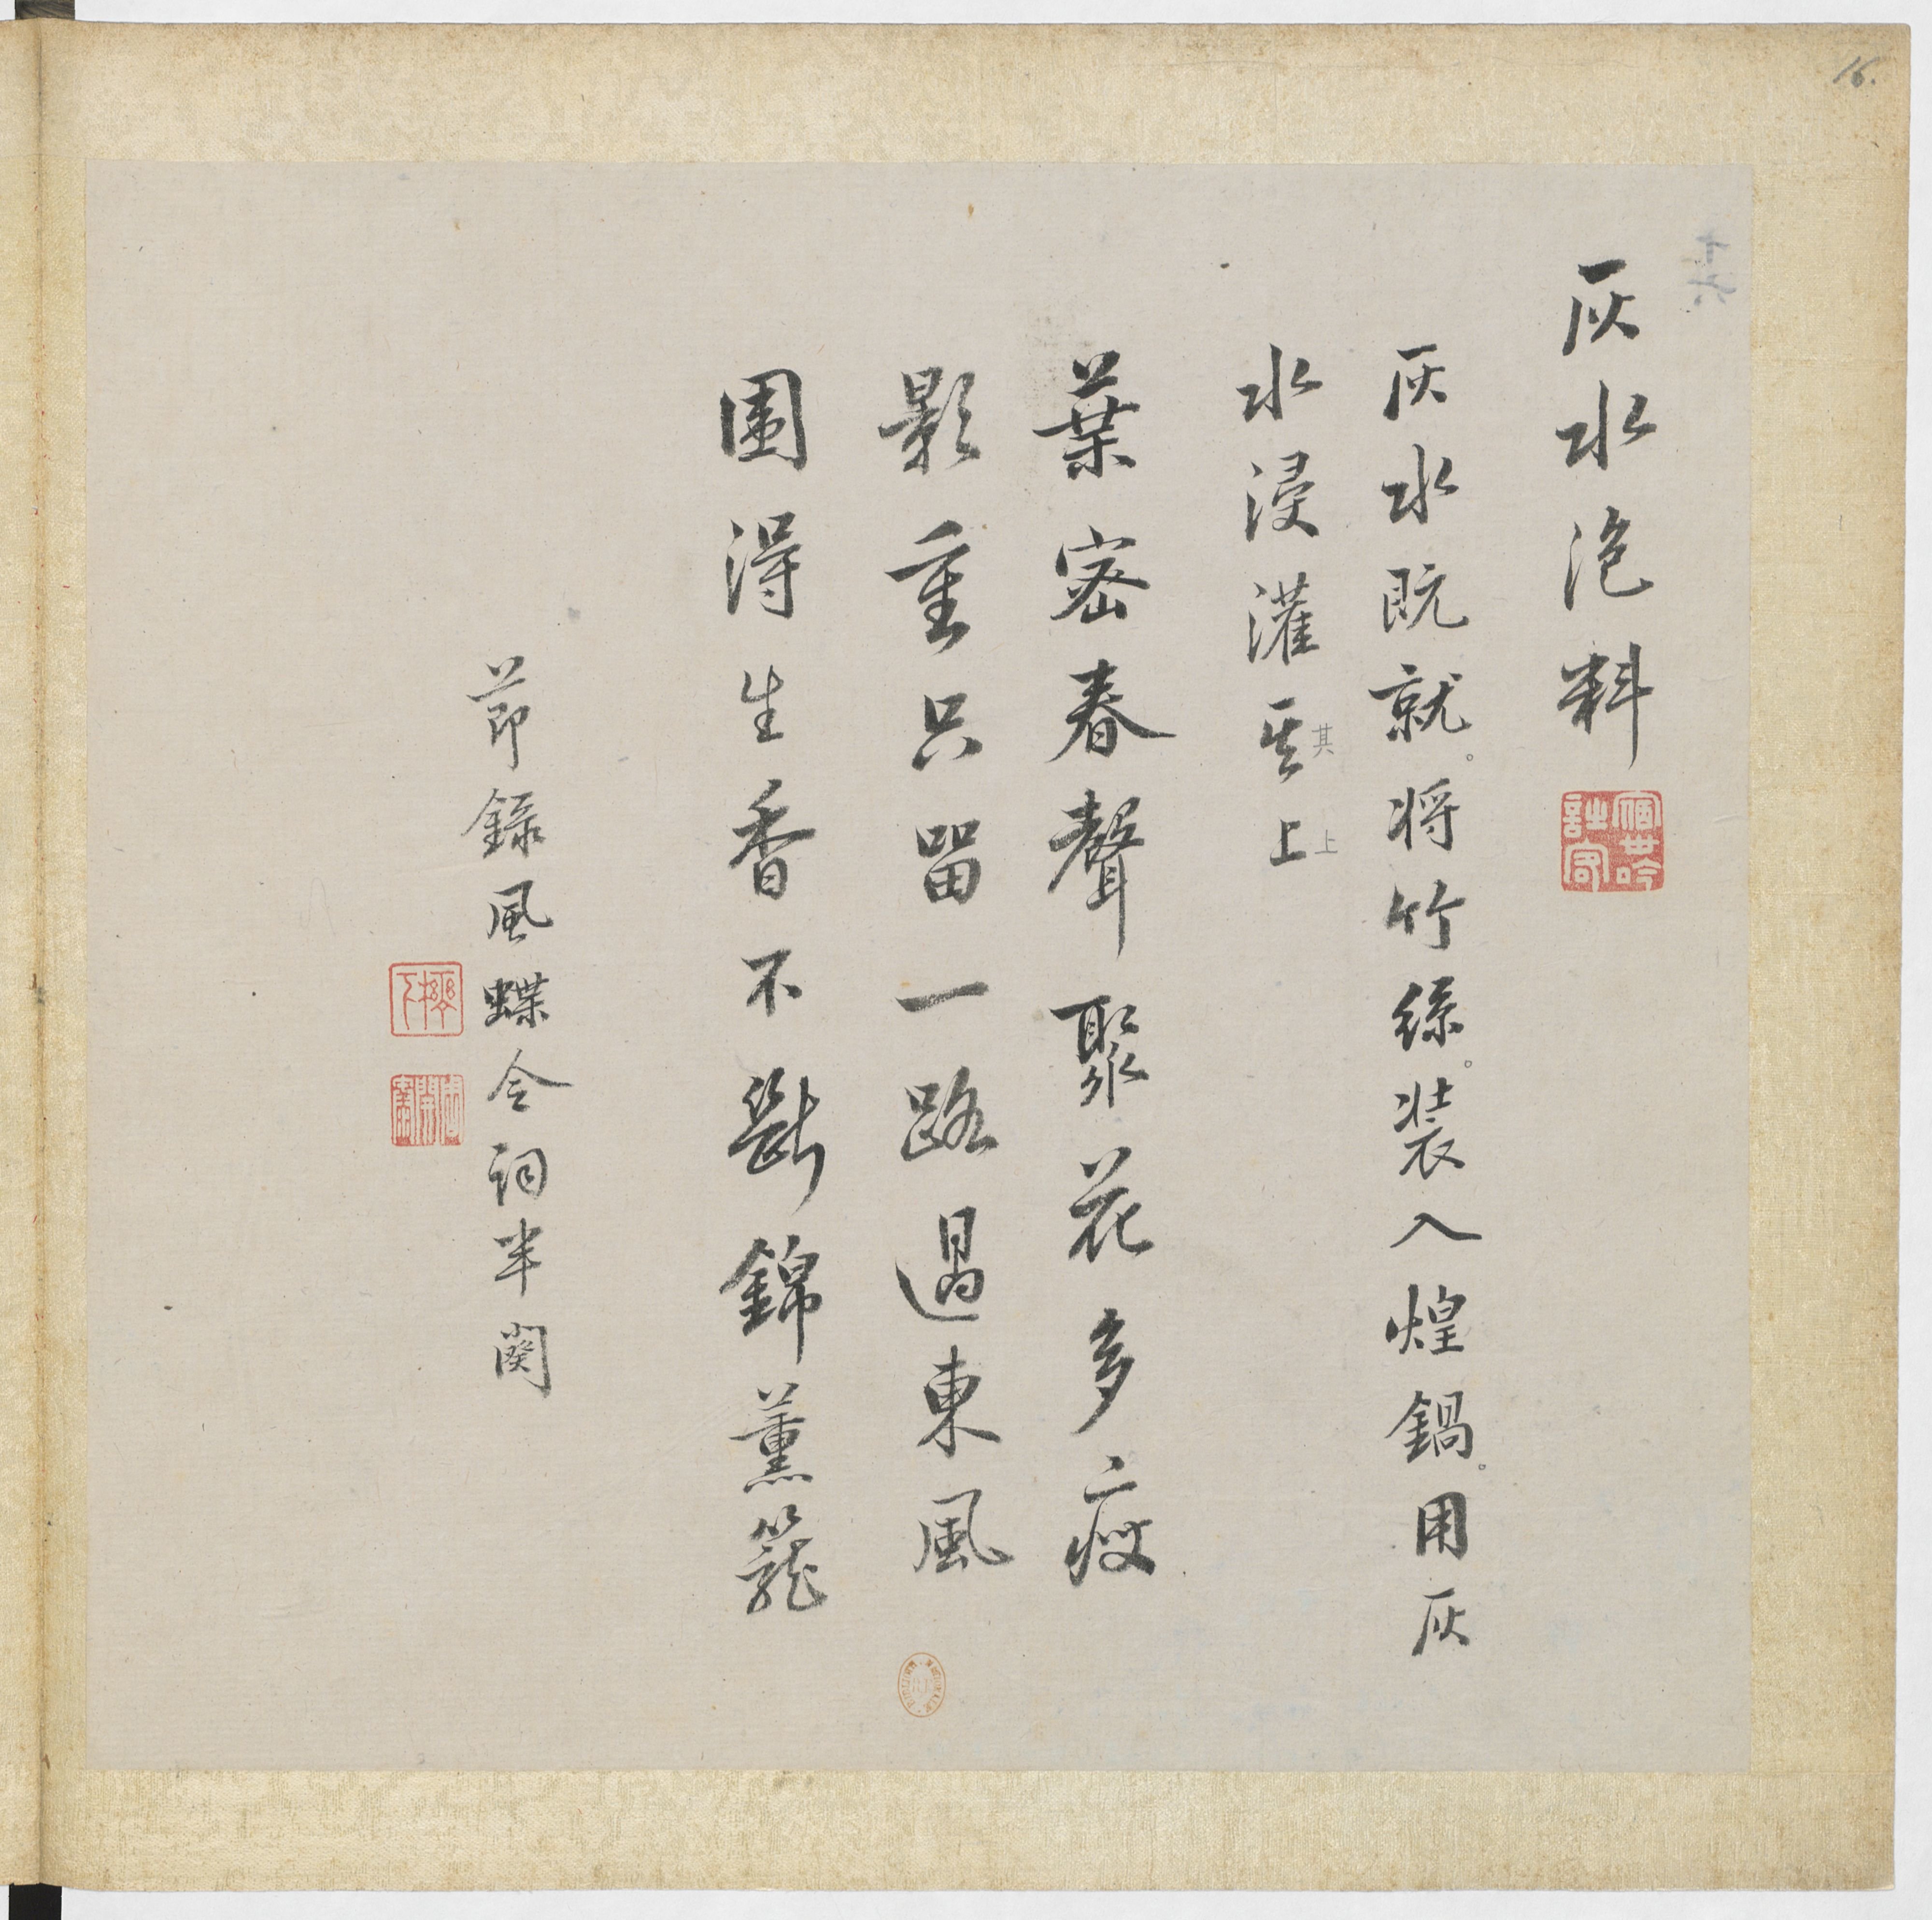 16.
灰水泡料
灰水既就。将竹絲。装入煌鍋。用灰
水浸灌其上
其
上
葉密春聲聚花多瘦
影重只留一路過東風
圍得生香不斷錦薰籠
節錄風蝶令詞半闋